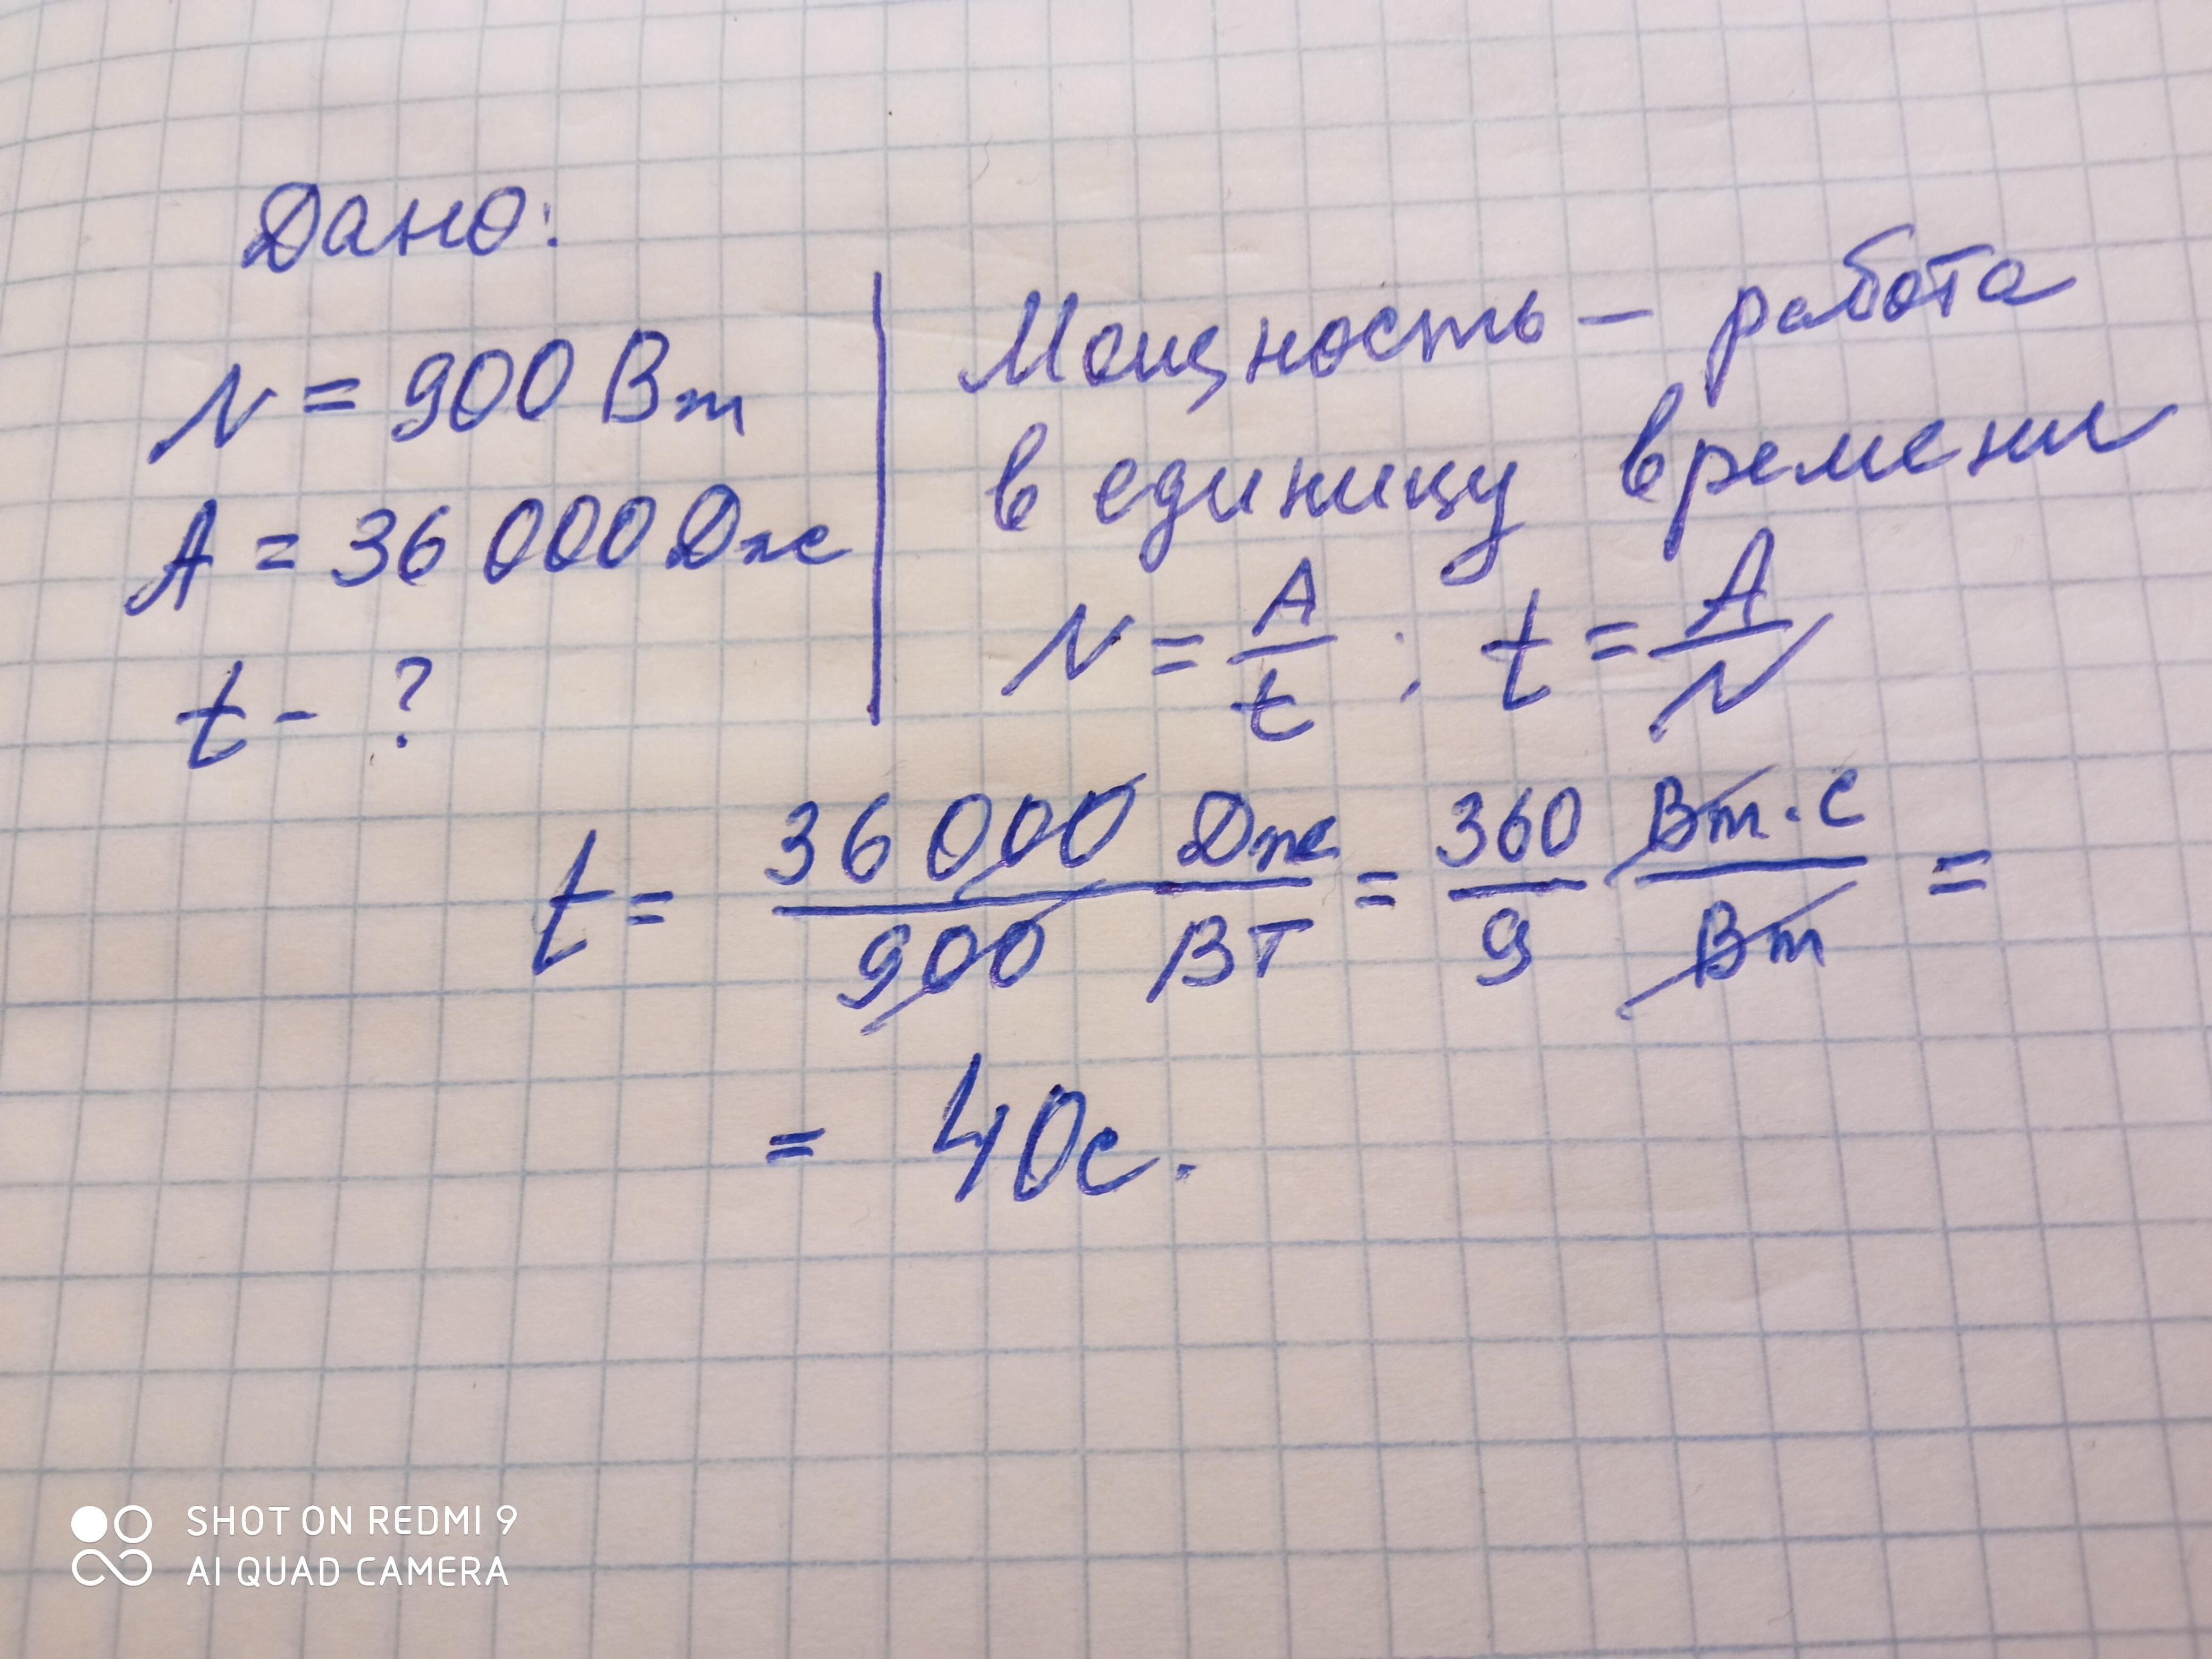 Дано:
N = 900 Вт
A = 36 000 Дж
t - ?
Мощность – работа
в единицу времени
N = A/t ; t = A/N
t = 36 000 Дж / 900 Вт = 360/9 Вт·с/Вт =
= 40с.
SHOT ON REDMI 9
AI QUAD CAMERA